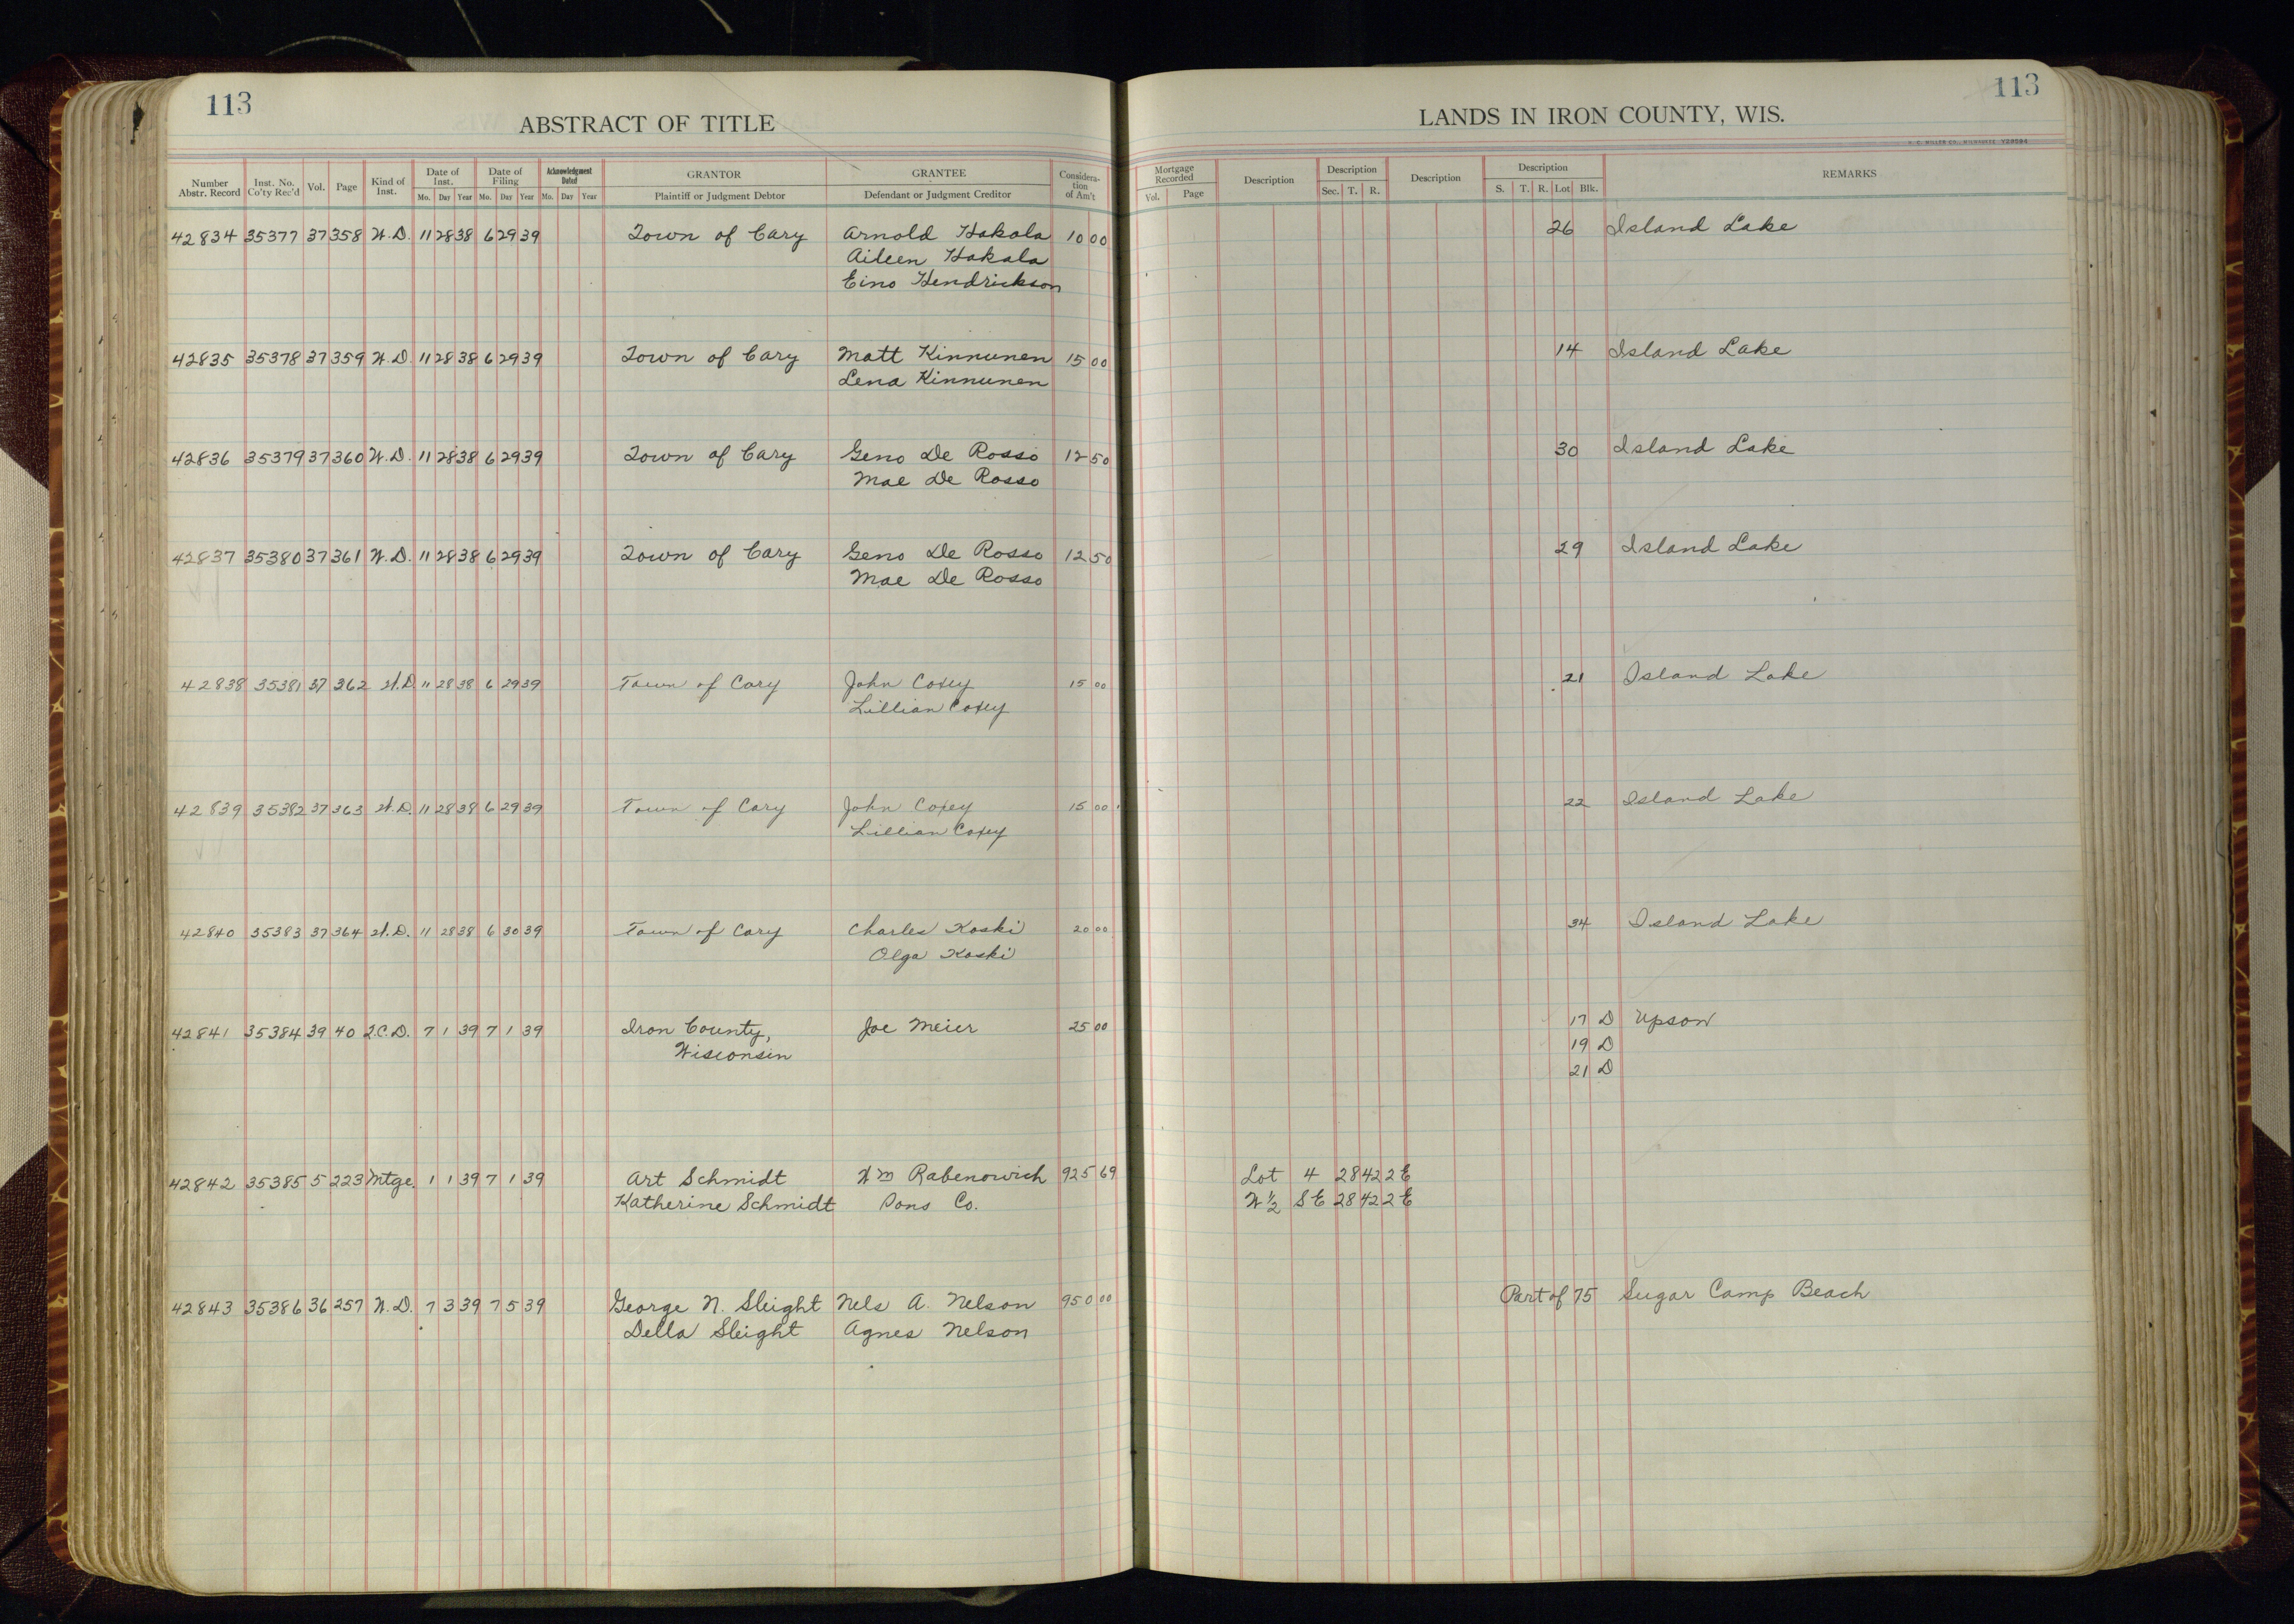 113
ABSTRACT OF TITLE
Number Abstr. Record Inst. No. Co'ty Rec'd Vol. Page Kind of Inst. Date of Inst. Mo. Day Year Date of Filing Mo. Day Year Acknowledgment Dated Mo. Day Year GRANTOR Plaintiff or Judgment Debtor GRANTEE Defendant or Judgment Creditor Consideration of Am't
42834 35377 37 358 W.D. 11 28 38 6 29 39 Town of Cary Arnold Hakala 10 00
Aileen Hakala
Eino Hendrickson
42835 35378 37 359 W.D. 11 28 38 6 29 39 Town of Cary Matt Kinnunen 15 00
Lena Kinnunen
42836 35379 37 360 W.D. 11 28 38 6 29 39 Town of Cary Geno De Rosso 12 50
Mae De Rosso
42837 35380 37 361 W.D. 11 28 38 6 29 39 Town of Cary Geno De Rosso 12 50
Mae De Rosso
42838 35381 37 362 W.D. 11 28 38 6 29 39 Town of Cary John Coxey 15 00
Lillian Coxey
42839 35382 37 363 W.D. 11 28 38 6 29 39 Town of Cary John Coxey 15 00
Lillian Coxey
42840 35383 37 364 W.D. 11 28 38 6 30 39 Town of Cary Charles Koski 20 00
Olga Koski
42841 35384 39 40 Q.C.D. 7 1 39 7 1 39 Iron County, Joe Meier 25 00
Wisconsin
42842 35385 5 223 Mtge. 1 1 39 7 1 39 Art Schmidt Wm Rabenowich 925 69
Katherine Schmidt Sons Co.
42843 35386 36 257 W.D. 7 3 39 7 5 39 George N. Sleight Nels A. Nelson 950 00
Della Sleight Agnes Nelson
113
LANDS IN IRON COUNTY, WIS.
H. C. MILLER CO., MILWAUKEE
Mortgage Recorded Vol. Page Description Description Sec. T. R. Description Description S. T. R. Lot Blk. REMARKS
26 Island Lake
14 Island Lake
30 Island Lake
29 Island Lake
21 Island Lake
22 Island Lake
34 Island Lake
17 D Upson
19 D
21 D
Lot 4 28 42 2E
W ½ SE 28 42 2E
Part of 75 Sugar Camp Beach